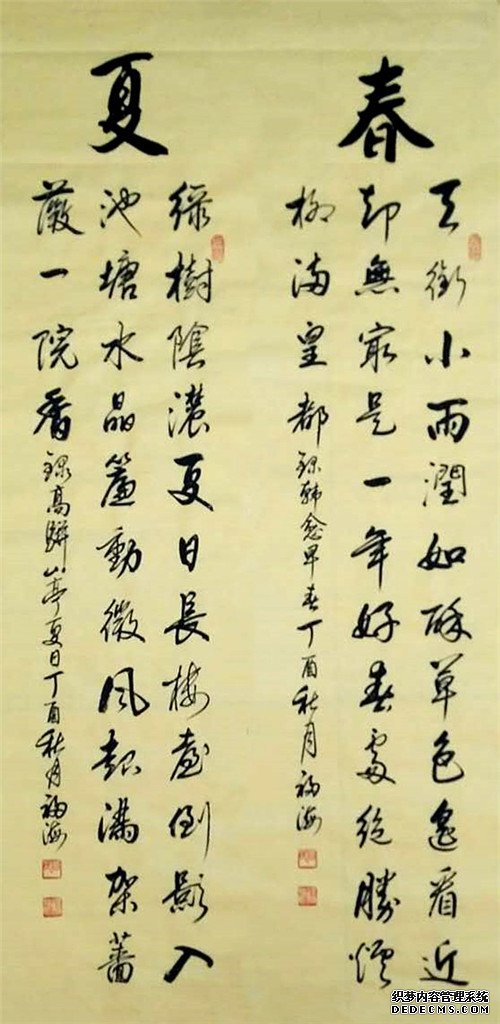 春
天街小雨潤如酥草色遥看近
却無最是一年好春處絕勝煙
柳滿皇都 録韓愈早春丁酉秋月福海
夏
綠樹陰濃夏日長樓臺倒影入
池塘水晶簾動微風起滿架薔
薇一院香 録高駢山亭夏日丁酉秋月福海
织梦内容管理系统
DEDECMS.COM